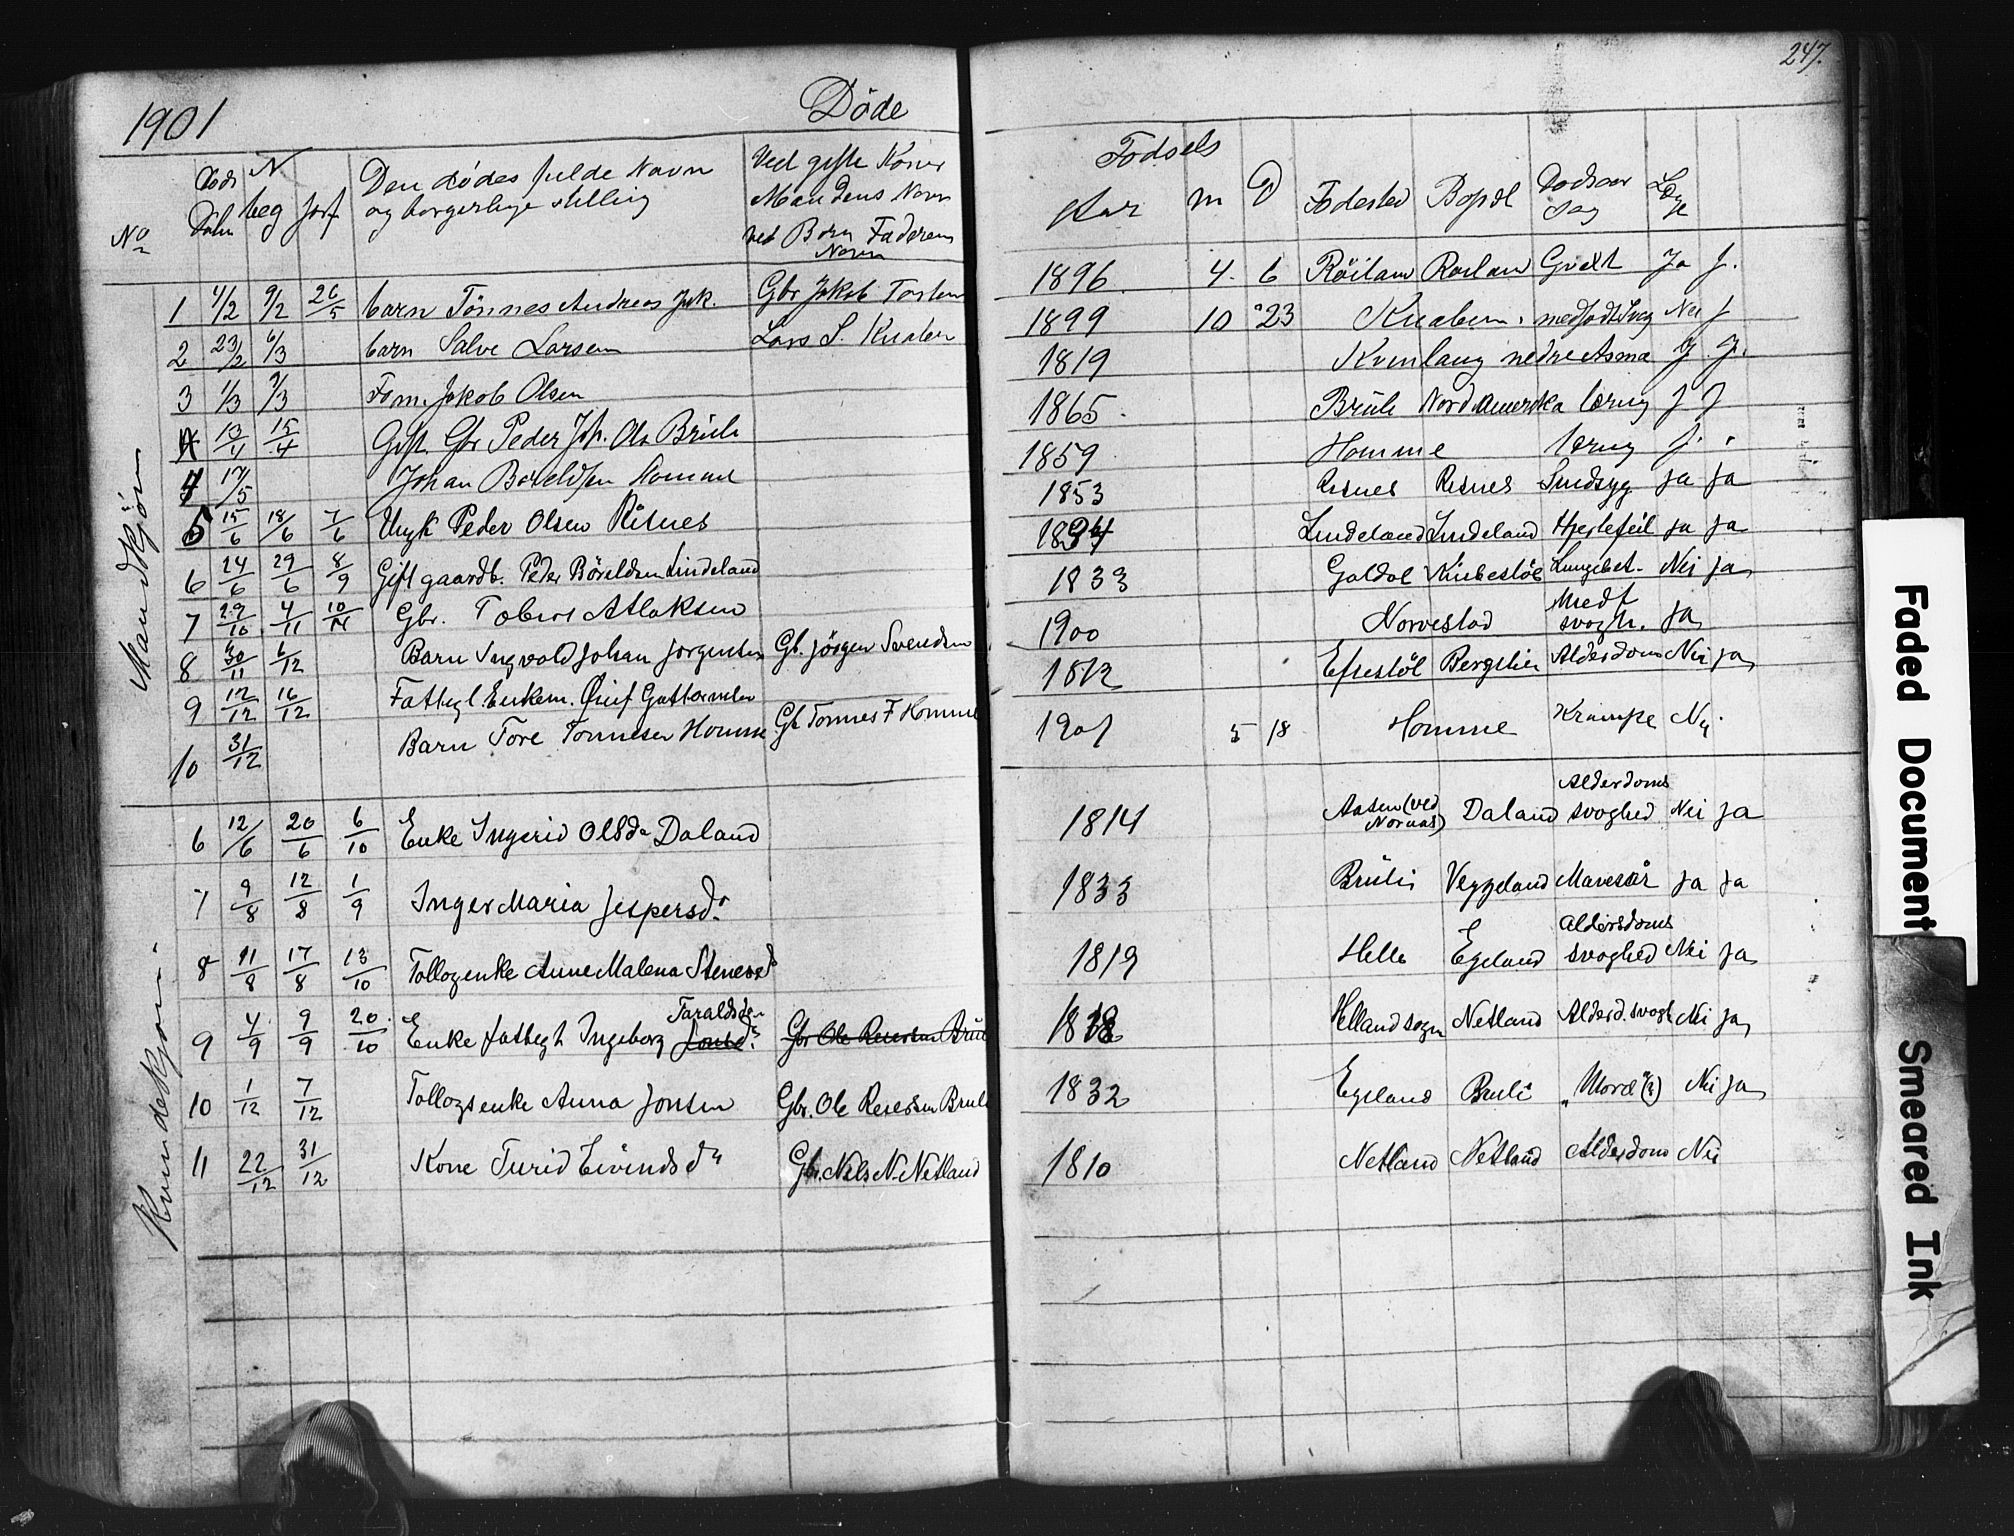 247.
1901 Döde
No Döds Datu N beg Jorf Den dödes fulde Navn og borgerlige stilling Ved gifte Koner Mandens Navn ved Börn Faderens Navn Födsels Aar m D Födested Bopæl Dödsaarsag Læge
Mandkjön
1 4/2 9/2 26/5 barn Tönnes Andreas Jak. Gbr Jakob Torsten 1896 4. 6 Röilan Roilan Ja j.
2 23/2 6/3 barn Salve Larsen Lars S. Knaben 1899 10 23 Knaben. medfödt Svag Nei j
3 1/3 9/3 Form. Jakob Olsen 1819 Kvinlaug nedre Asma J. J.
4 13/4 15/4 Gift Gbr Peder Joh. Ols Brüli 1865. Brüli Nord Amerika tæring J J
4 17/5 Johan Böreldsen Homme 1859 Homme tæring J.
5 15/6 18/6 7/6 Ungk Peder Olsen Risnes 1853 Risnes Risnes Sindsyg ja ja
6 24/6 29/6 8/9 Gift gaardb. Peder Böreldsen Lindeland 1834 Lindeland Lindeland Hjertefeil ja ja
7 29/10 4/11 10/14 Gbr. Tobias Atlaksen 1833 Galdal Knibestöl Lungebet. Nei ja
8 30/11 6/12 Barn Ingvald Johan Jorgensen Gb. Jörgen Svendsen 1900 Norvestad Medf svagh. ja
9 12/12 16/12 Fattigl Enkem. Guttormsen 1812 Eftestöl Bergslien Alderdom Nei ja
10 31/12 Barn Tore Tönnesen Homme Gb Tönnes F Homme 1901 5 18 Homme Krampe Nej.
Kvindekjön
6 12/6 20/6 6/10 Enke Ingerid Olsda Daland 1814 Aasen (ved Nornas) Daland Alderdoms svaghed Nei ja
7 9/8 12/8 1/9 Inger Maria Jespersdr. 1833 Brüli Veggeland Mavesår ja ja
8 11/8 17/8 13/10 Tollogenke Anne Malena Stenersd 1819 Helle Egeland Aldersdoms svaghed Nei ja
9 4/9 9/9 20/10 Enke fattigl Ingeborg Taraldsda Jonsdr. Gbr Ole Reiersen Brüli 1818 Helland sogn Netland Alderd. svagh Nei ja
10 1/12 7/12 Tollogsenke Anna Jonsen Gbr. Ole Reiersen Brüli 1832 Egeland Bruli "Mord"(?) Nei ja
11 22/12 31/12 Kone Turid Eivindsdr Gbr. Nils N. Netland 1810 Netland Netland Alderdom Nei
Faded Document
Smeared Ink